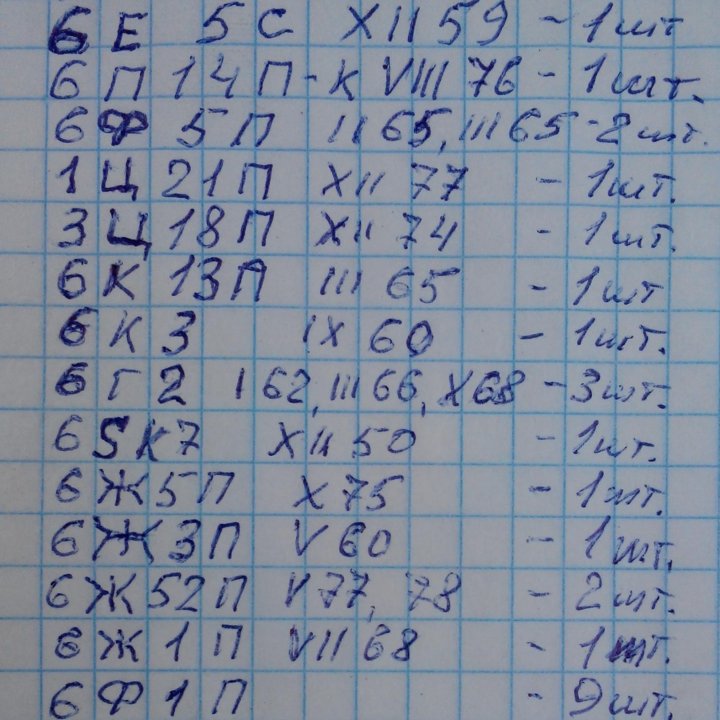 6 Е 5 С XII 59 - 1 шт
6 П 14 П - К VIII 76 - 1 шт.
6 Ф 5 П II 65, III 65 - 2 шт.
1 Ц 21 П XII 77 - 1 шт.
3 Ц 18 П XII 74 - 1 шт.
6 К 13 П III 65 - 1 шт
6 К 3 IX 60 - 1 шт.
6 Г 2 I 62, III 66, X 68 - 3 шт.
6 S К 7 XII 50 - 1 шт.
6 Ж 5 П X 75 - 1 шт.
6 Ж 3 П V 60 - 1 шт.
6 Ж 52 П V 77, 78 - 2 шт.
6 Ж 1 П VII 68 - 1 шт.
6 Ф 1 П - 9 шт.